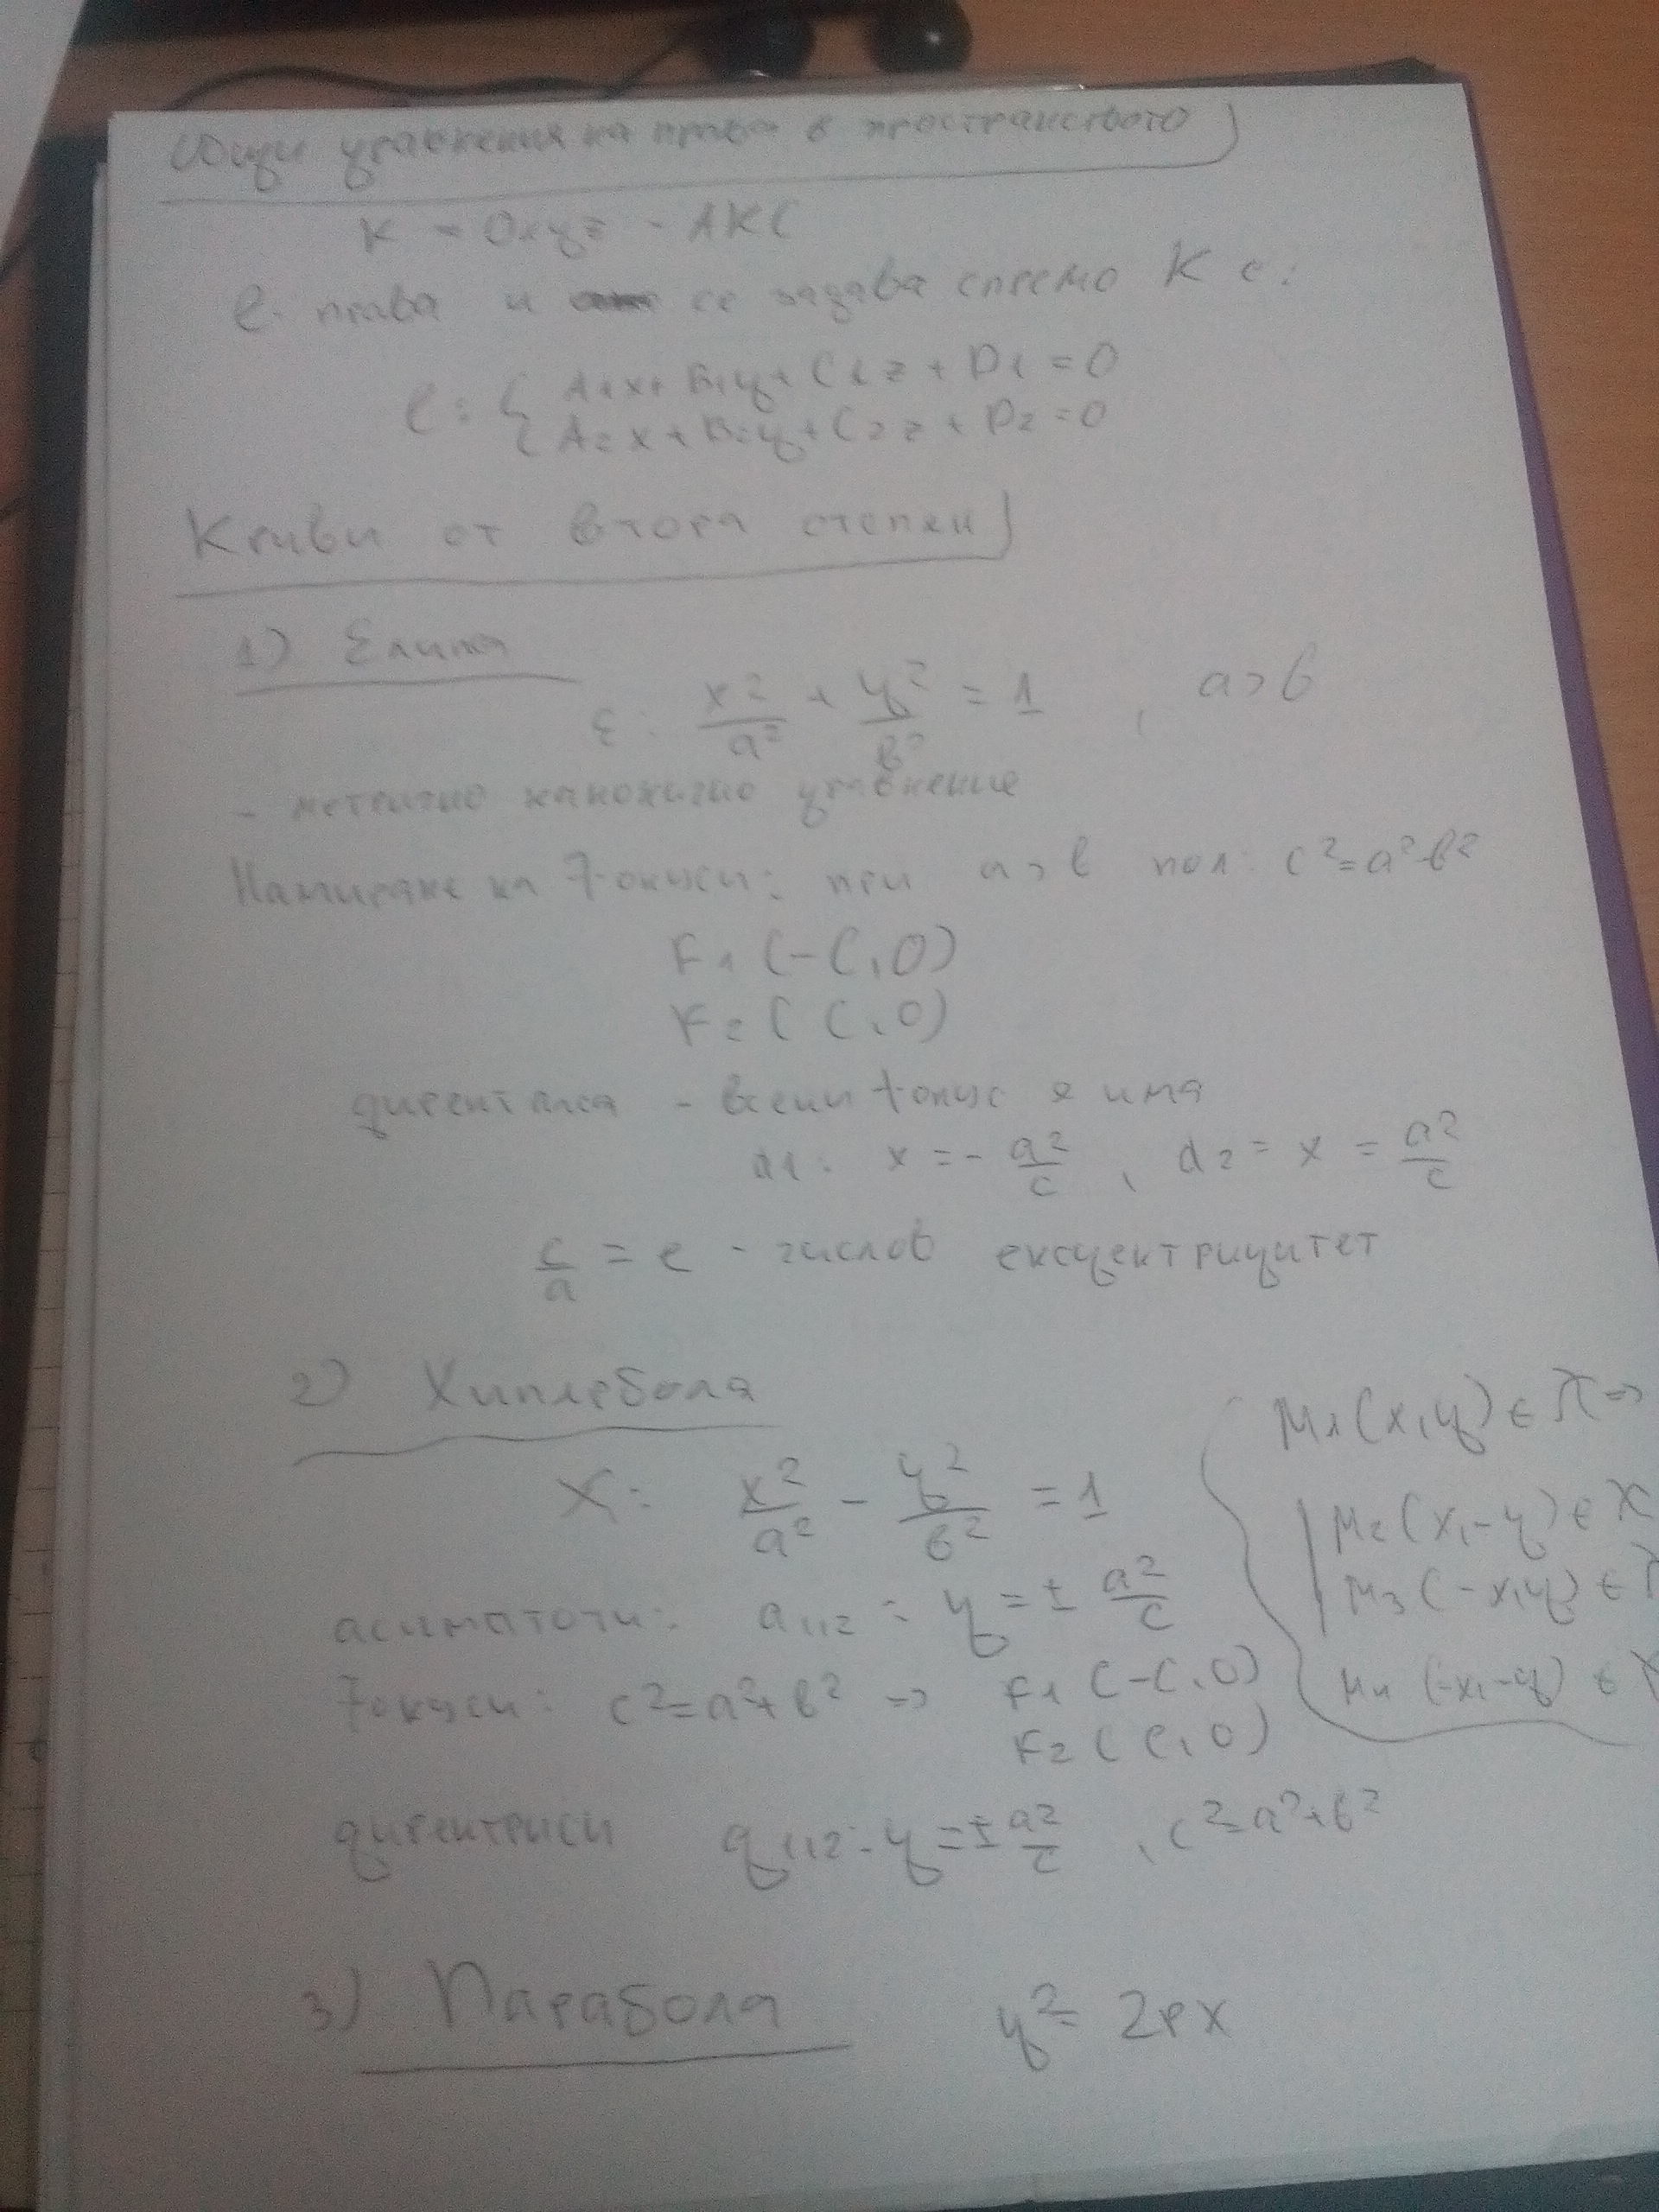 Общи уравнения на права в пространството
K = Oxyz - АКС
l - права и се задава спрямо K с:
l: { A1x + B1y + C1z + D1 = 0
A2x + B2y + C2z + D2 = 0
Криви от втора степен
1) Елипса
ε: x²/a² + y²/b² = 1, a > b
- метрично канонично уравнение
Намиране на фокуси: при a > b пол. c² = a² - b²
F1 (-c, 0)
F2 (c, 0)
директриса - всеки фокус я има
d1: x = - a²/c, d2 = x = a²/c
c/a = e - числов ексцентрицитет
2) Хипербола
χ: x²/a² - y²/b² = 1
асимптоти: a1,2 : y = ± a²/c
фокуси: c² = a² + b² => F1 (-c, 0)
F2 (c, 0)
директриси g1,2: y = ± a²/c, c² = a² + b²
M1 (x, y) ∈ χ =>
M2 (x, -y) ∈ χ
M3 (-x, y) ∈
M4 (-x, -y) ∈ χ
3) Парабола y² = 2px